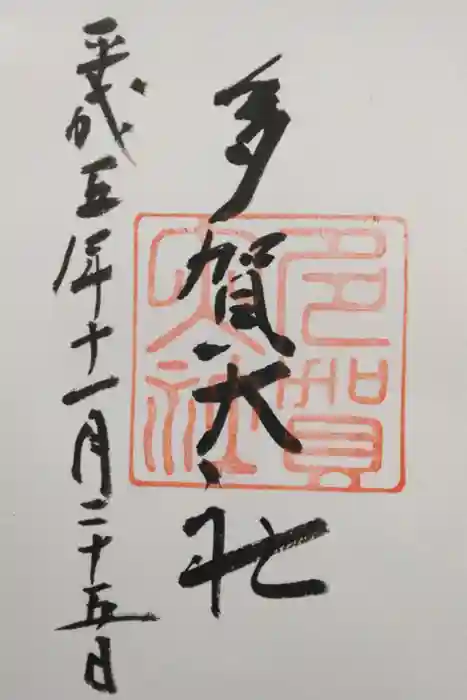 多賀大社
平成五年十一月二十五日
多賀
大社